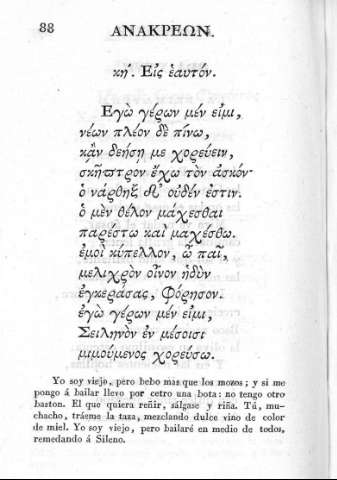 38
ΑΝΑΚΡΕΩΝ.
κή. Εἰς ἑαυτόν.
Εγὼ γέρων μέν εἰμι,
νέων πλέον δὲ πίνω,
κἂν δεήσῃ με χορεύειν,
σκῆπτρον ἔχω τὸν ἀσκόν·
ὁ νάρθηξ δ' οὐδέν ἐστιν.
ὁ μὲν θέλον μάχεσθαι
παρέστω καὶ μαχέσθω.
ἐμοὶ κύπελλον, ὦ παῖ,
μελιχρὸν οἶνον ἡδὺν
ἐγκεράσας, φόρησον.
ἐγὼ γέρων μέν εἰμι,
Σειληνὸν ἐν μέσοισι
μιμούμενος χορεύσω.
Yo soy viejo, pero bebo mas que los mozos; y si me
pongo á bailar llevo por cetro una bota: no tengo otro
baston. El que quiera reñir, sálgase y riña. Tú, mu-
chacho, tráeme la taza, mezclando dulce vino de color
de miel. Yo soy viejo, pero bailaré en medio de todos,
remedando á Sileno.